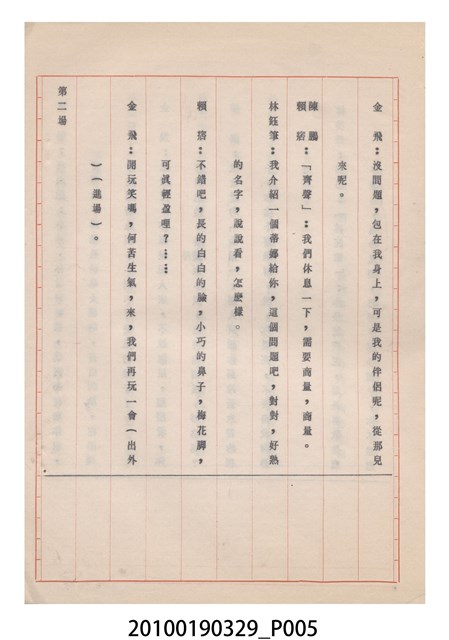 金　飛：沒問題，包在我身上，可是我的伴侶呢，從那兒
來呢。
陳　鵬
賴　唐：「齊聲」：我們休息一下，需要商量，商量。
林鈺箏：我介紹一個蒂娜給你，這個問題吧，對對，好熟
的名字，說說看，怎麼樣。
賴　唐：不錯吧，長的白白的臉，小巧的鼻子，梅花腳，
可真輕盈哩？……
金　飛：開玩笑嗎，何苦生氣，來，我們再玩一會（出外
）（進場）。
第二場
20100190329_P005